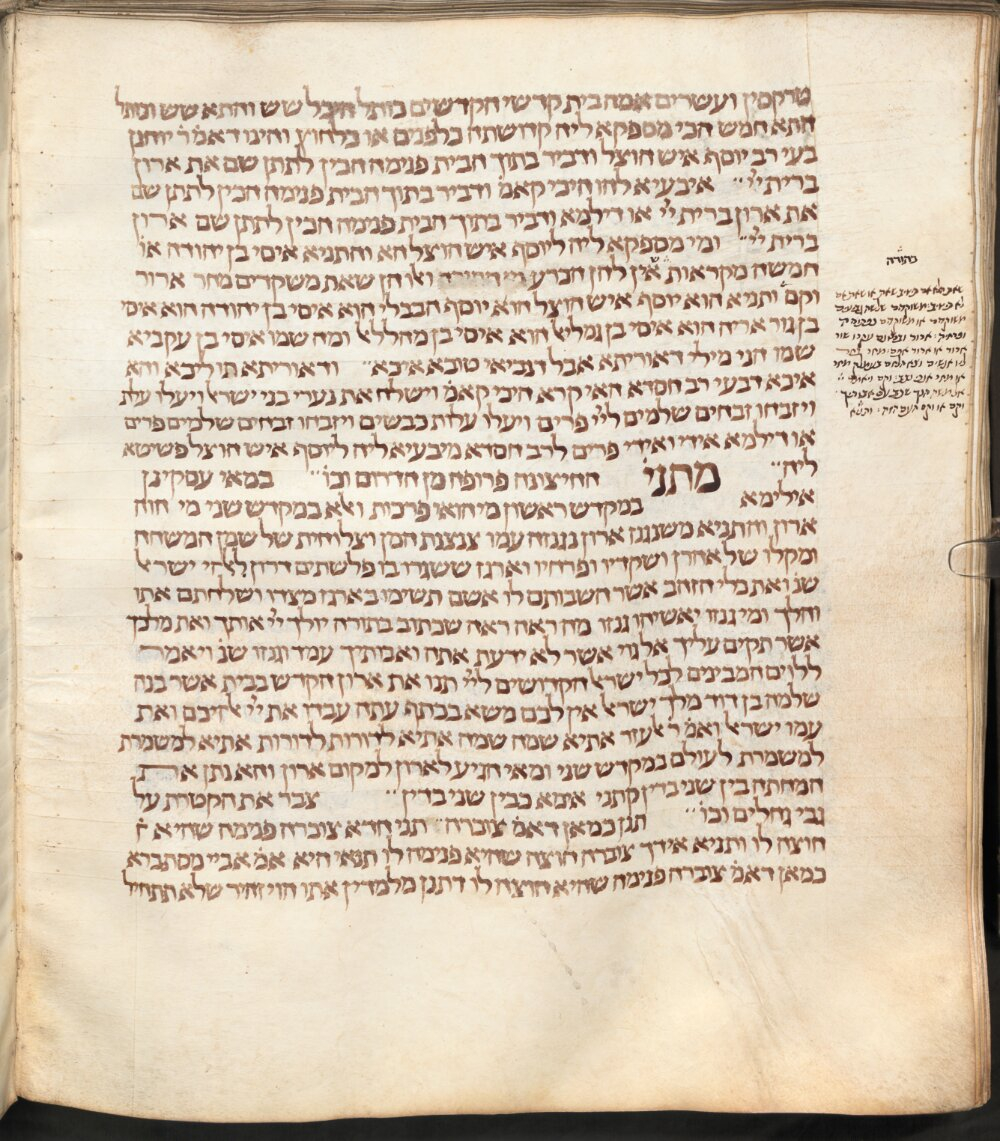 טרקסין ועשרים אמה בית קדשי הקדשים כותל היכל שש והתא שש וכותל
התא חמש הכי מספקא ליה קדושתה כלפנים או כלחוץ והינו דאמ׳ ר׳ יוחנן
בעי רב יוסף איש הוצל ודביר בתוך הבית פנימה הכין לתתן שם את ארון
ברית יי׳ איבעיא להו היכי קאמ׳ ודביר בתוך הבית פנימה הכין לתתן שם
את ארון ברית יי׳ או דילמא ודביר בתוך הבית פנימה הכין לתתן שם ארון
ברית יי׳ ומי מספקא ליה ליוסף איש הוצל הא והתניא איסי בן יהודה או׳
חמשה מקראות אין להן הכרע ואלו הן שאת משקדים מחר ארור
וקם ותניא הוא יוסף איש הוצל הוא יוסף הבבלי הוא איסי בן יהודה הוא איסי
בן גור אריה הוא איסי בן גמליא׳ הוא איסי בן מהללא׳ ומה שמו איסי בן עקביא
שמו הני מילי דאוריתא אבל דנביאי טובא איכא ודאוריתא תו ליכא והא
איכא דבעי רב חסדא האי קרא היכי קאמ׳ וישלח את נערי בני ישראל ויעלו עלת
ויזבחו זבחים שלמים ליי׳ פרים ויעלו עלות כבשים ויזבחו זבחים שלמים פרים
או דילמא אידי ואידי פרים לרב חסדא מיבעיא ליה ליוסף איש הוצל פשיטא
ליה מתני׳ החיצונה פרופה מן הדרום וכו׳ במאי עסקינן
אילימא במקדש ראשון מי הואי פרכות ואלא במקדש שני מי הוה
ארון והתניא משנגנז ארון נגנזה עמו צנצנת המן וצלוחית של שמן המשחה
ומקלו של אהרן ושקדיו ופרחיו וארגז ששגרו בו פלשתים דרון לאלהי ישראל
שנ׳ ואת כלי הזהב אשר השבותם לו אשם תשימו בארגז מצדו ושלחתם אתו
והלך ומי גנזו יאשיהו גנזו מה ראה ראה שכתוב בתורה יולך יי׳ אותך ואת מלכך
אשר תקים עליך אל גוי אשר לא ידעת אתה ואבותיך עמד וגנזו שנ׳ ויאמר
ללוים המבינים לכל ישראל הקדושים ליי׳ תנו את ארון הקדש בבית אשר בנה
שלמה בן דוד מלך ישראל אין לכם משא בכתף עתה עבדו את יי׳ אלהיכם ואת
עמו ישראל ואמ׳ ר׳ אלעזר אתיא שמה שמה אתיא לדורות לדורות אתיא למשמרת
למשמרת לעולם במקדש שני ומאי הגיע לארון למקום ארון והא נתן את
המחתה בין שני בדין קתני אימא כבין שני בדין צבר את הקטרת על
גבי גחלים וכו׳ תנן כמאן דאמ׳ צוברה תני חדא צוברה פנימה שהיא
חוצה לו ותניא אידך צוברה חוצה שהיא פנימה לו תנאי היא אמ׳ אביי מסתברא
כמאן דאמ׳ צוברה פנימה שהיא חוצה לו דתנן מלמדין אתו הוי זהיר שלא תתחיל